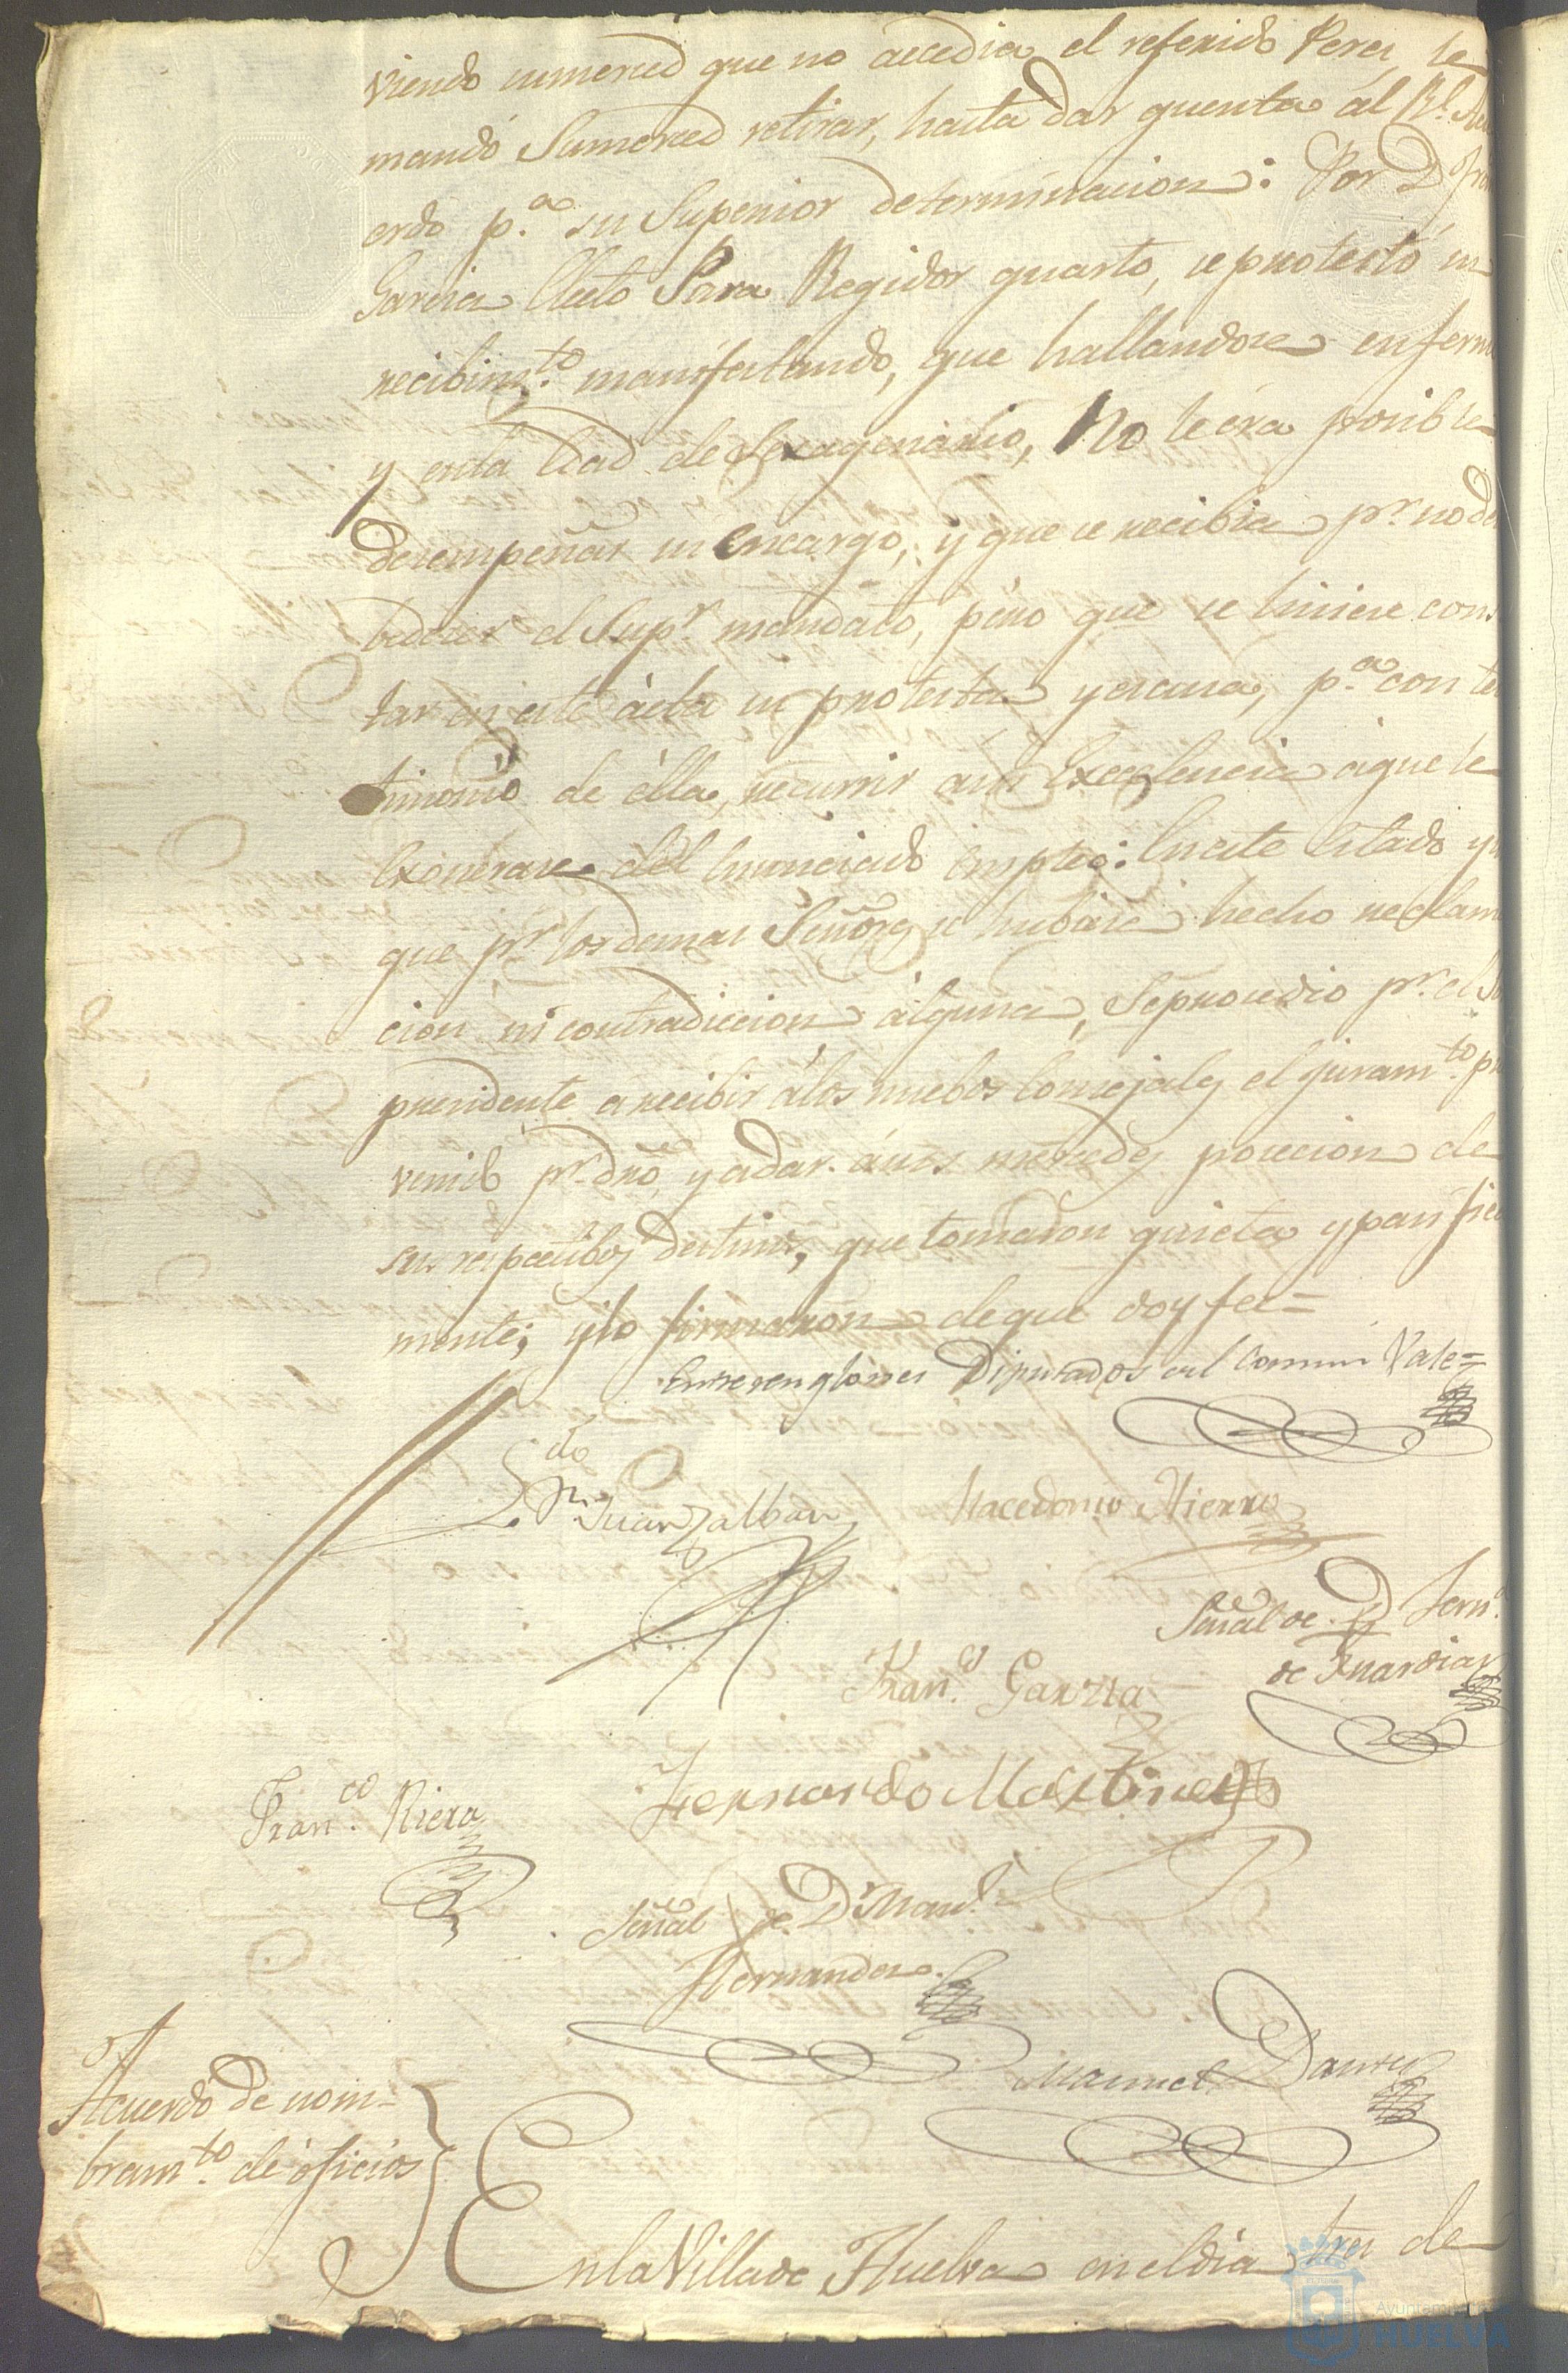 viendo sumerced que no accedia el referido Perez, le
mandó Sumerced retirar, hasta dar quenta al Rl. Acu
erdo p.a su Superior determinacion: Por Dn Fran
Garcia Electo Para Regidor quarto, se protestó su
recibim.to manifestando, que hallandose enferm
y enla Edad de Sexagenario, No le éra posible
desempeñar su encargo, y que se recibia pr. no de
bedecer el Supr. mandato, pero que se hiciese cons
tar en este ácta su protesta y escusa, p.a con tes
timonio de élla, recurrir a su Excelencia áque le
Exonerase del Enunciado empleo: En este Estado y
que pr. los demas Señores se hubiese hecho reclam
cion ni contradiccion álguna, Se procedio pr. el Sr
presidente a recibir álos nuebos Consejales el juram.to pre
venido pr. dro, y adar ásus mercedes posecion de
sus respectibos destinos, que tomaron quieta y pasifica
mente; y lo firmaron de que doy fee=
Entrerenglones Diputados del Comun Vale=
Ldo Dn Juan Zalban
Macedonio Hierro
Señal de D Fern.
de Guardia
Fran.co Garzia
Fernando Martinez
Fran.co Riera
Señal de Dn Manl.
Hernandez.
Manuel
Acuerdo de nom-
bram.to de óficios
En la Villa de Huelva en el dia tres de
Ayuntamiento
HUELVA